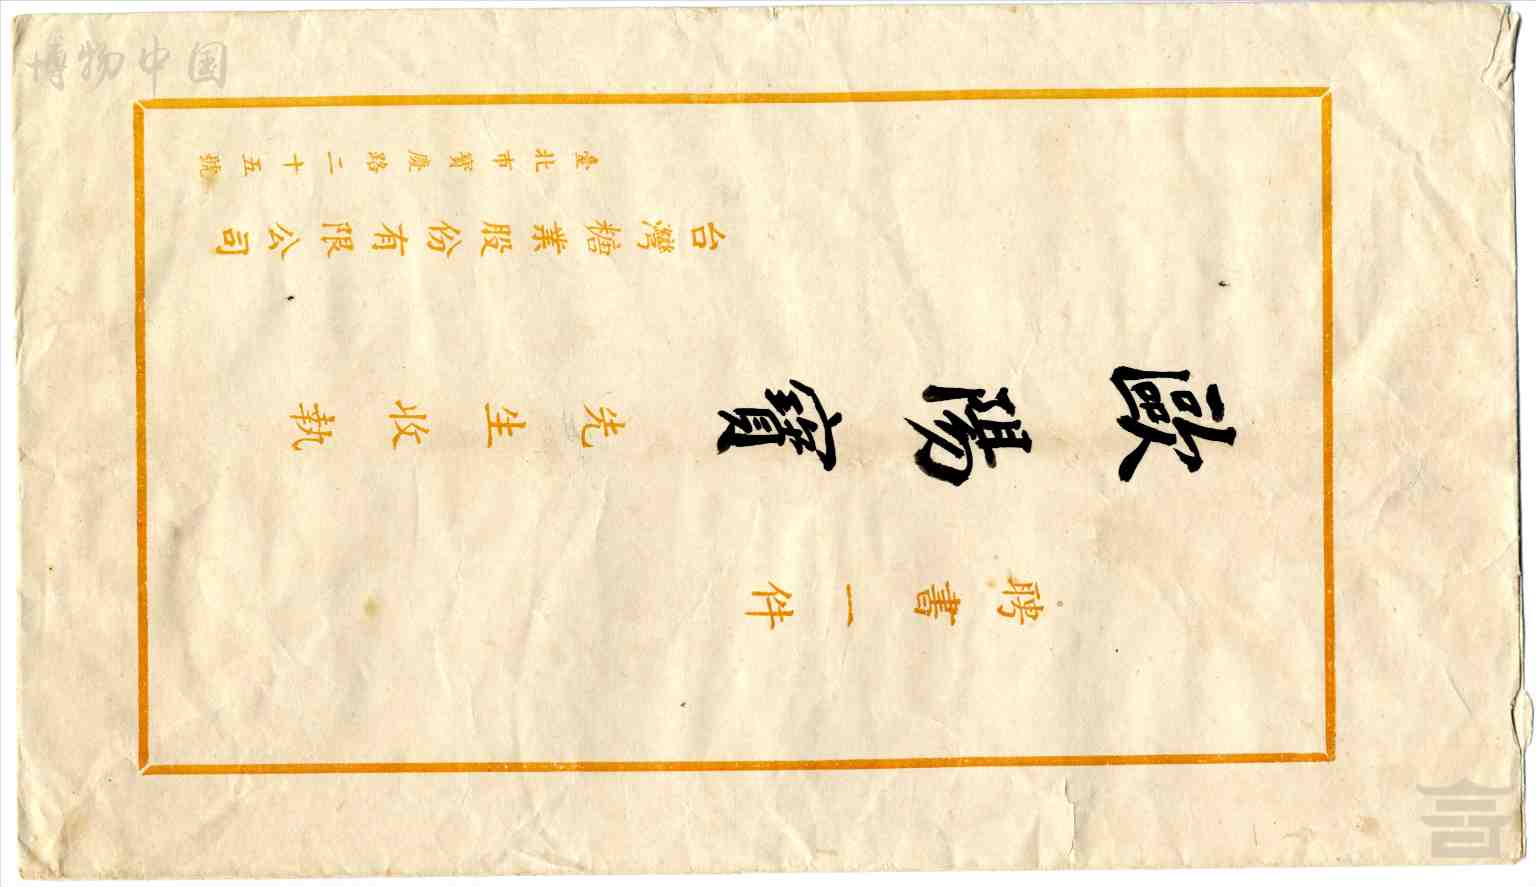 聘書一件
歐陽寶先生收執
台灣糖業股份有限公司
臺北市寶慶路二十五號
博物中国